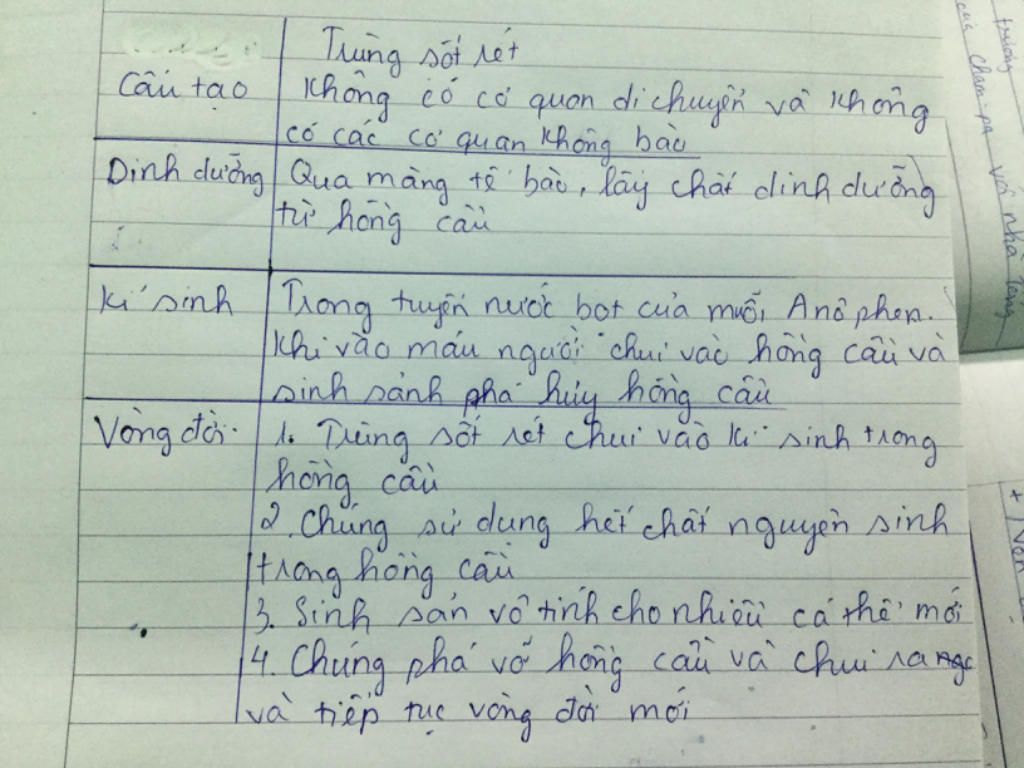 Trùng sốt rét
Cấu tạo
Không có cơ quan di chuyển và không
có các cơ quan không bào
Dinh dưỡng
Qua màng tế bào, lấy chất dinh dưỡng
từ hồng cầu
Kí sinh
Trong tuyến nước bọt của muỗi Anôphen.
Khi vào máu người chui vào hồng cầu và
sinh sản phá hủy hồng cầu
Vòng đời
1. Trùng sốt rét chui vào kí sinh trong
hồng cầu
2. Chúng sử dụng hết chất nguyên sinh
trong hồng cầu
3. Sinh sản vô tính cho nhiều cá thể mới
4. Chúng phá vỡ hồng cầu và chui ra
và tiếp tục vòng đời mới